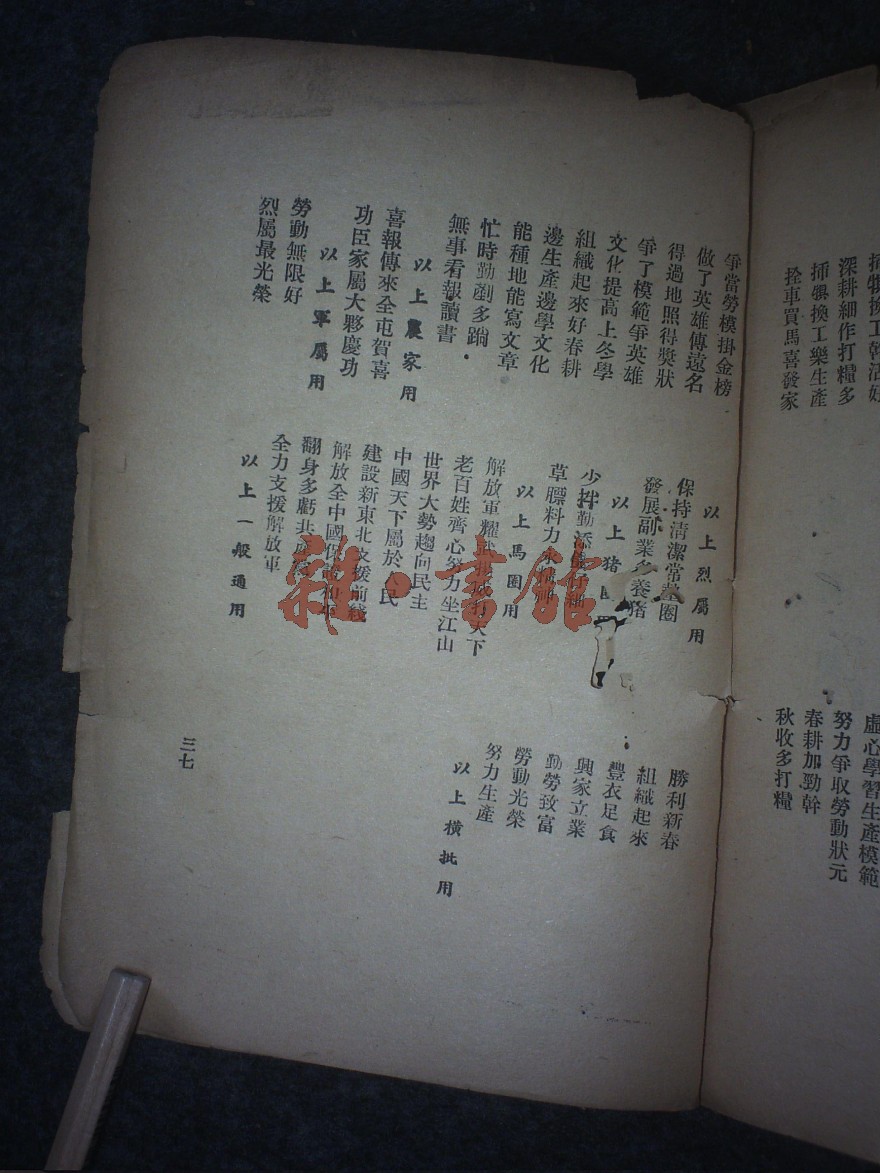 深耕細作打糧多
插犋換工樂生產
拴車買馬喜發家
虛心學習生產模範
努力爭取勞動狀元
春耕加勁幹
秋收多打糧
爭當勞模掛金榜
做了英雄傳遠名
得過地照得獎狀
爭了模範爭英雄
文化提高上冬學
組織起來好春耕
邊生產邊學文化
能種地能寫文章
忙時勤剷多蹚
無事看報讀書
以上農家用
喜報傳來全屯賀喜
功臣家屬大夥慶功
以上軍屬用
勞動無限好
烈屬最光榮
以上烈屬用
保持清潔常墊圈
發展副業多養猪
以上猪
少拌勤添
草膘料力水精神
以上馬圈用
解放軍耀武
天下
老百姓齊心努力坐江山
世界大勢趨向民主
中國天下屬於人民
建設新東北支援前綫
解放全中國保
翻身多虧共
全力支援解放軍
以上一般通用
勝利新春
組織起來
豐衣足食
興家立業
勤勞致富
勞動光榮
努力生產
以上橫批用
三七
雜·書館